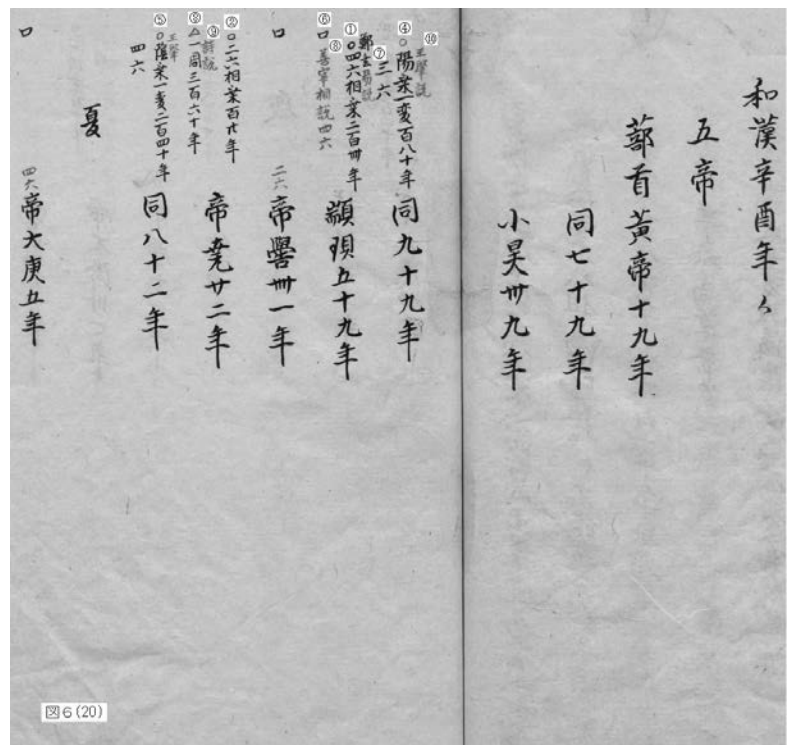 和漢辛酉年々
五帝
蔀首黄帝十九年
同七十九年
小昊卅九年
⑩王肇説
④○陽乗一変百八十年 同九十九年
⑦三六
鄭玄易説
①○四六相乗二百卌年 顓頊五十九年
⑧
⑥口善宰相説四六
口 二六 帝嚳卅一年
②○二六相乗百廿年 帝堯廿二年
⑨詩説
③△一周三百六十年
王肇
⑤○陰乗一変二百四十年 同八十二年
四六
夏
口 四六 帝大庚五年
図6(20)